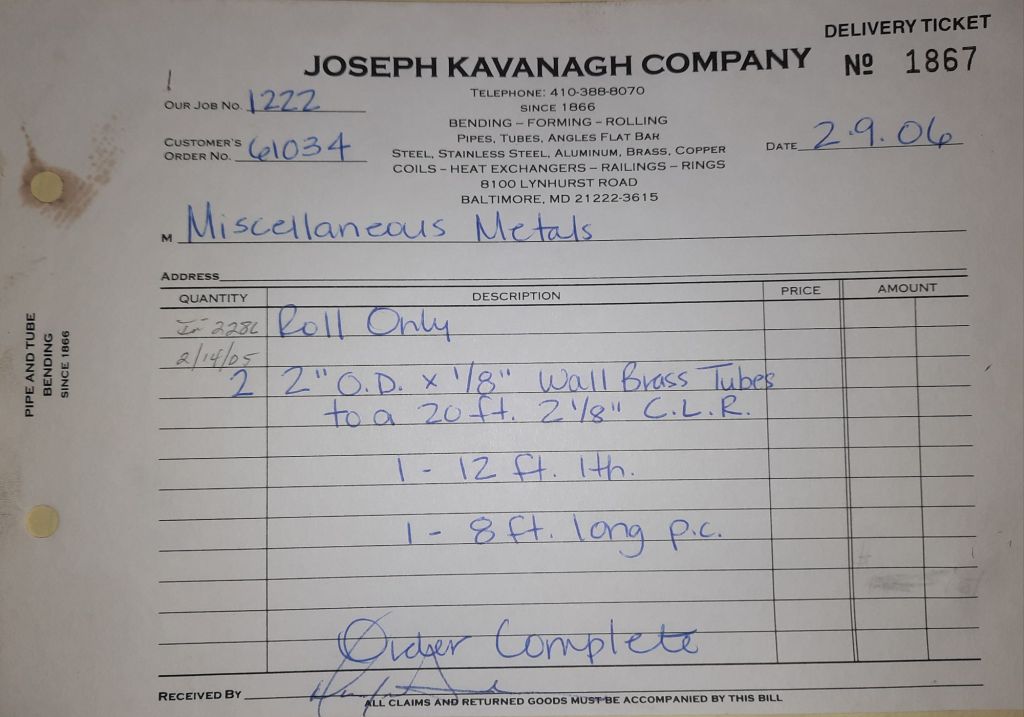 DELIVERY TICKET
JOSEPH KAVANAGH COMPANY
Nº 1867
TELEPHONE: 410-388-8070
SINCE 1866
BENDING – FORMING – ROLLING
PIPES, TUBES, ANGLES FLAT BAR
STEEL, STAINLESS STEEL, ALUMINUM, BRASS, COPPER
COILS – HEAT EXCHANGERS – RAILINGS – RINGS
8100 LYNHURST ROAD
BALTIMORE, MD 21222-3615
OUR JOB NO. 1222
CUSTOMER'S
ORDER NO. 61034
DATE 2.9.06
M Miscellaneous Metals
ADDRESS
QUANTITY DESCRIPTION PRICE AMOUNT
Roll Only
2/14/05
2 2" O.D. x 1/8" Wall Brass Tubes
to a 20 ft. 2 1/8" C.L.R.
1 - 12 ft. lth.
1 - 8 ft. long p.c.
Order Complete
RECEIVED BY
ALL CLAIMS AND RETURNED GOODS MUST BE ACCOMPANIED BY THIS BILL
PIPE AND TUBE
BENDING
SINCE 1866